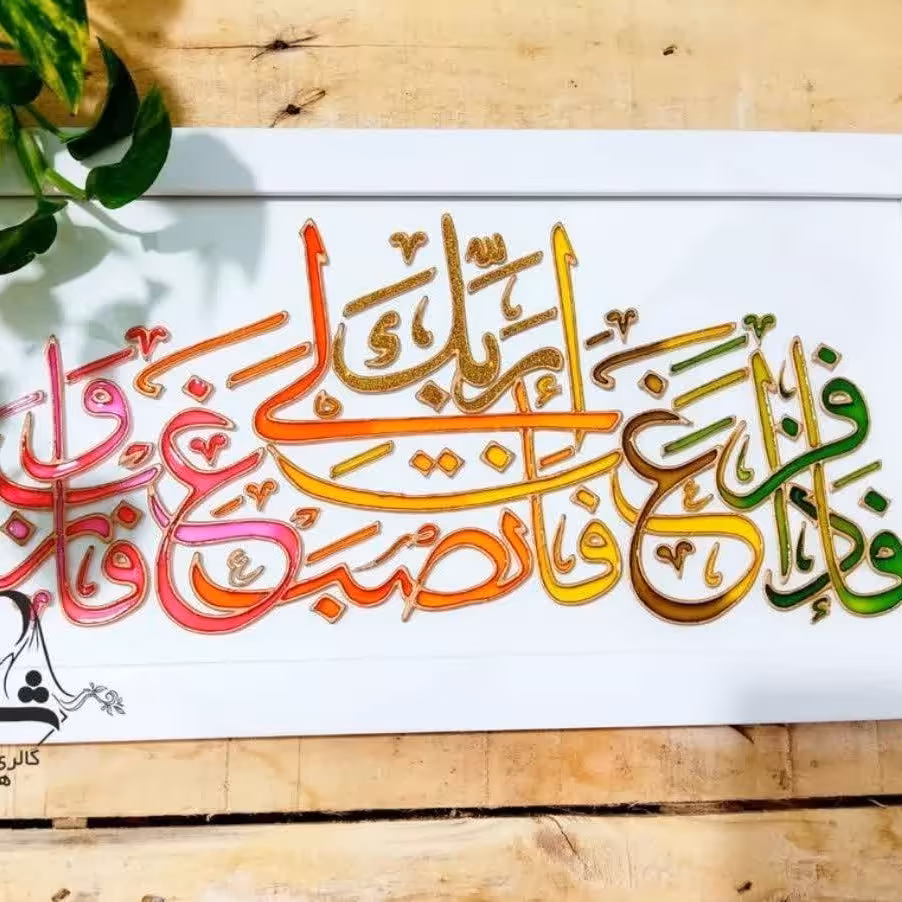 فإذا فرغت فانصب وإلى ربك فارغب
گالری